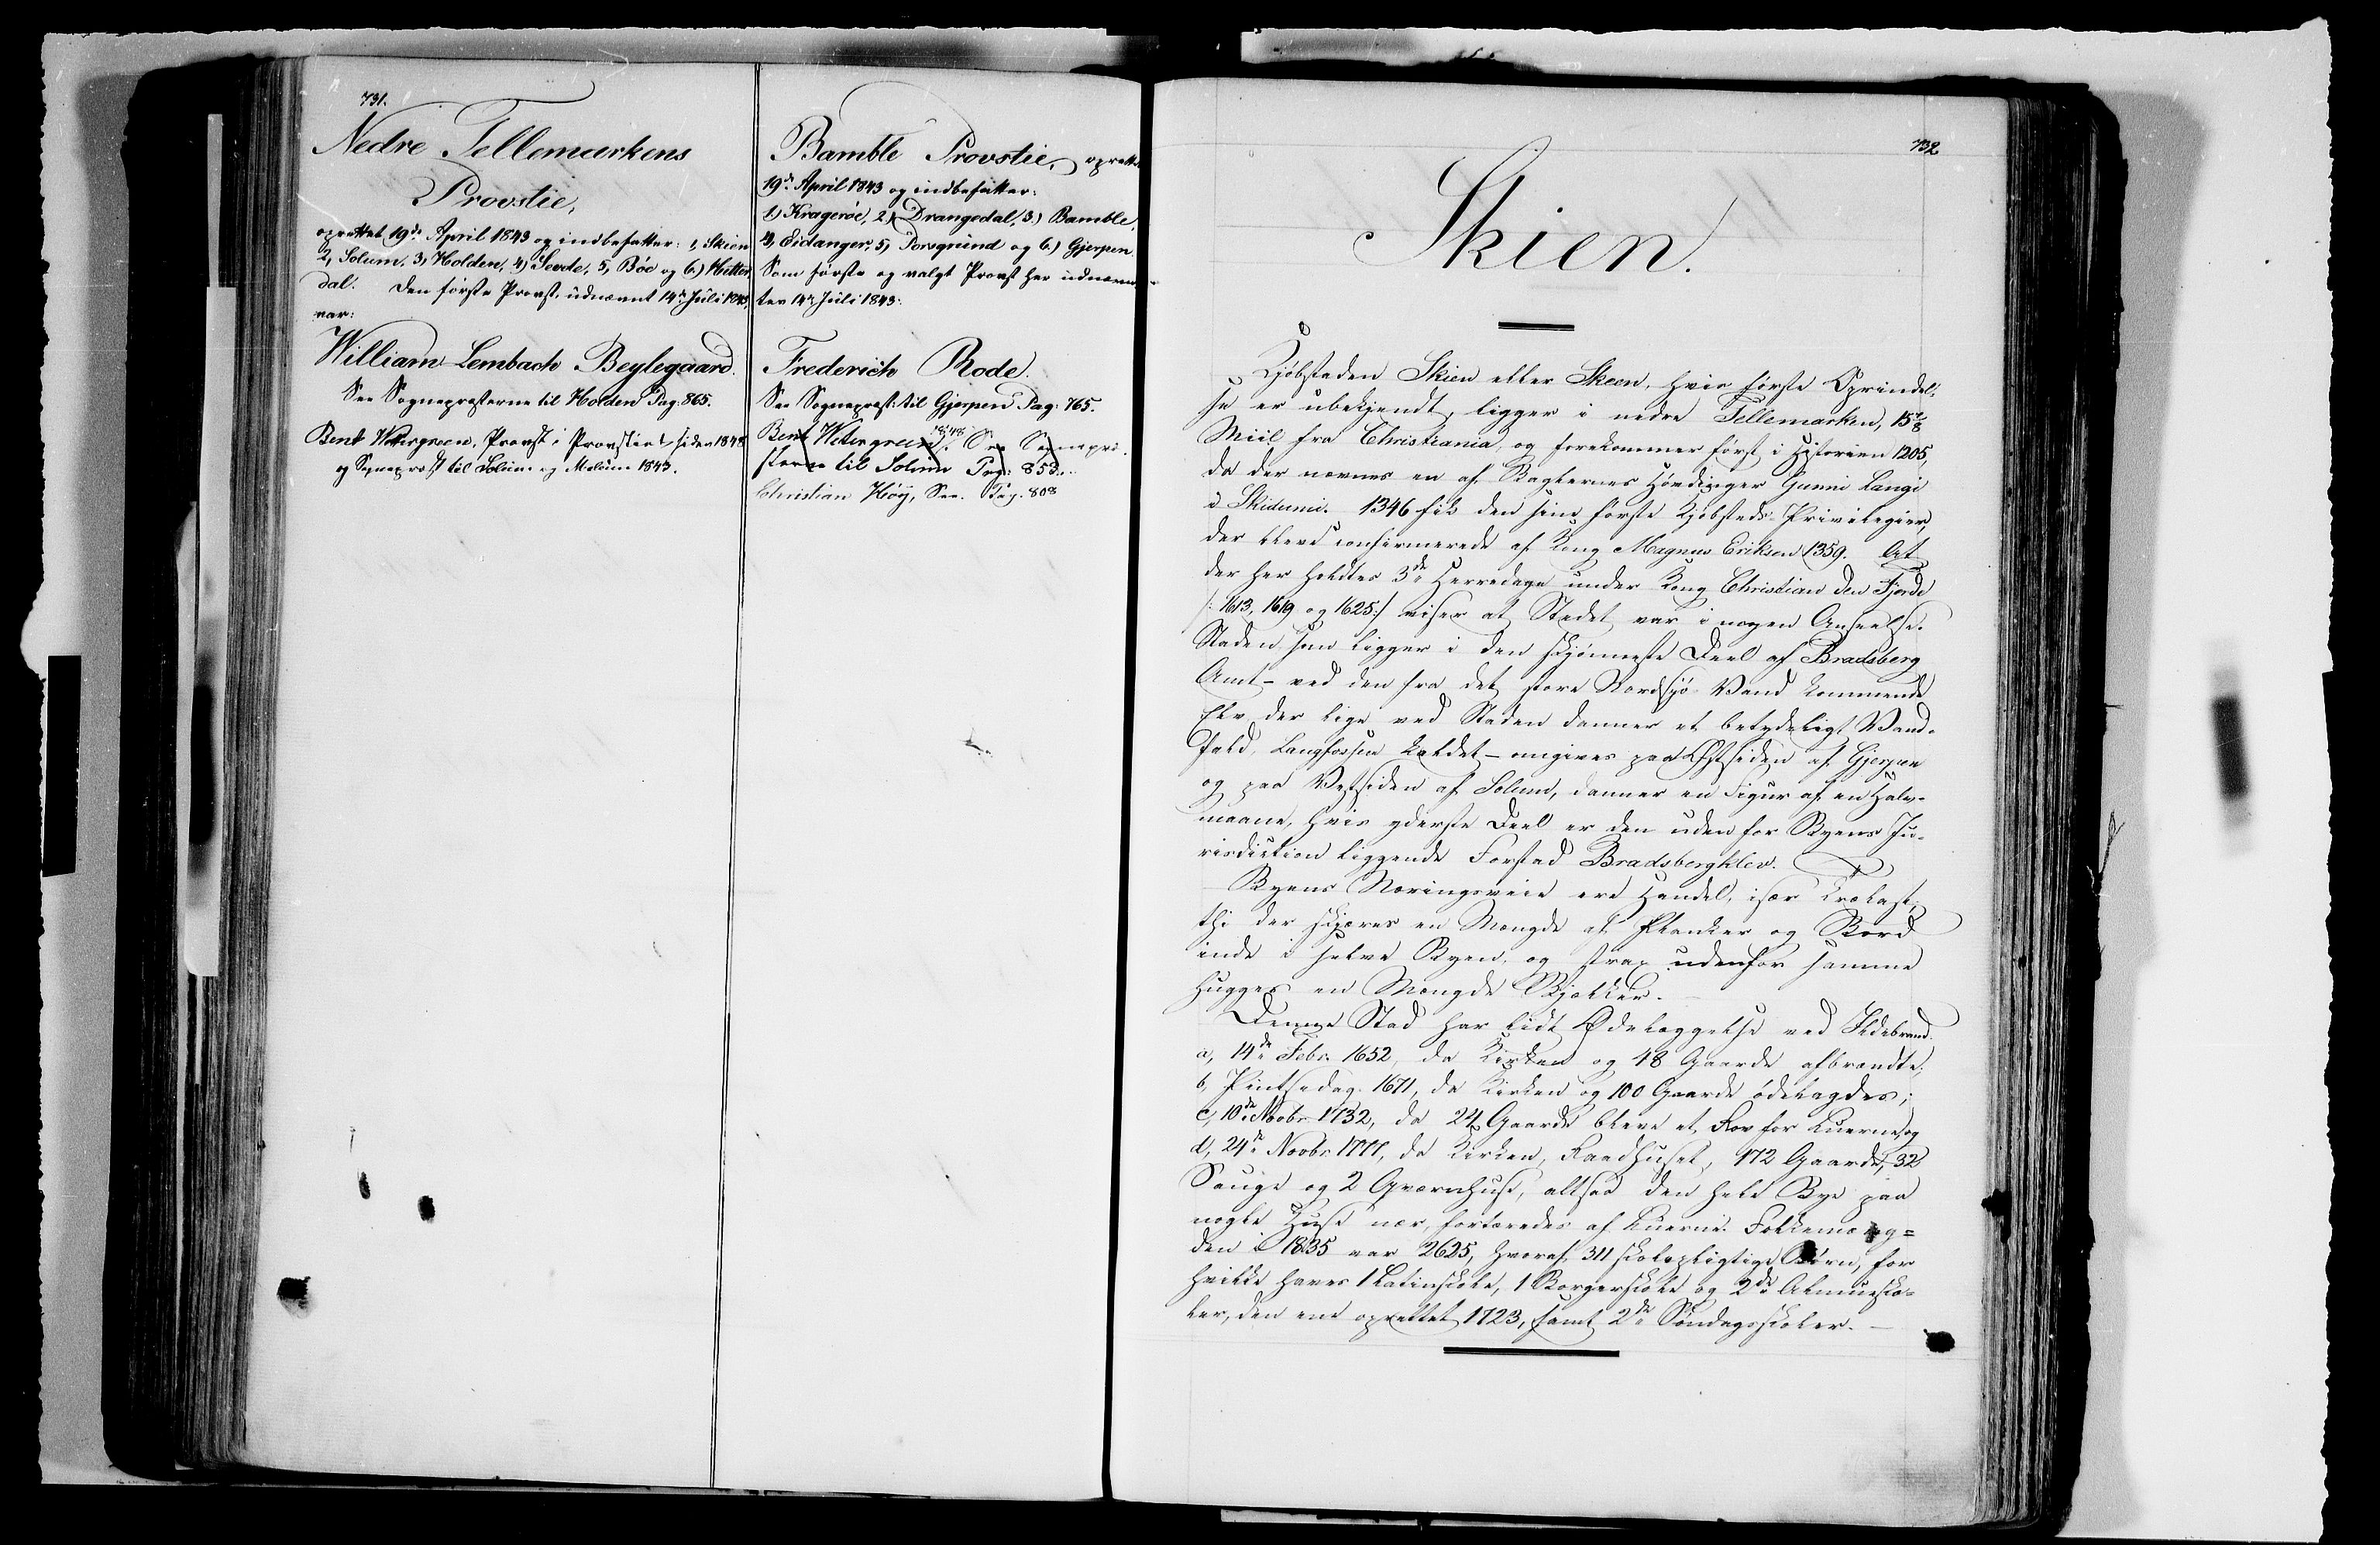 731.
Nedre Tellemarkens
Provstie,
oprettet 19de April 1843 og indbefatter: 1, Skien
2, Solum, 3, Holden, 4) Sevde, 5, Böe og 6.) Hitter
dal. Den første Provst, udnævnt 14de Juli 1843,
var:
William Lembach Beylegaard.
See Sognepræsterne til Holden Pag: 865.
Bent Wettergreen, Provst i Provstiet siden 1848
og Sognepræst til Solum og Melum 1843.
Bamble Provstie, oprettet
19de April 1843 og indbefatter:
1) Kragerøe, 2.) Drangedal, 3.) Bamble,
4, Eidanger, 5, Porsgrund og 6.) Gjerpen
Som første og valgt Provst her udnævn-
tes 14de Juli 1843:
Frederich Rode.
See Sognepræst: til Gjerpen Pag: 765.
Bent Wettergreen, 1848. See Sognepræ-
sterne til Solum Pag: 853.
Christian Höy, See. Pag. 808
732
Skien.
Kjøbstaden Skien eller Skeen, hvis første Oprindel-
se er ubekjendt, ligger i nedre Tellemarken, 15 7/8
Miil fra Christiania, og forekommer først i Historien 1205,
da der nævnes en af Baglernes Høvdinger Gunni Langi
i Skidumi. 1346 fik den sine første Kjøbsteds-Privilegier,
der bleve confirmerede af Kong Magnus Eriksen 1359. At
der her holdtes 3de Herredage under Kong Christian den Fjerde
/: 1613, 1619 og 1625:/ viser at Stedet var i nogen Anseelse.
Staden som ligger i den skjønneste Deel af Bradsberg
Amt – ved den fra det store Nordsjø-Vand kommende
Elv der lige ved Staden danner et betydeligt Vand-
fald, Langfossen kaldet – omgives paa Østsiden af Gjerpen
og paa Vestsiden af Solum, danner en Figur af en Halv-
maane, hvis yderste Deel er den uden for Byens Ju-
risdiction liggende Forstad Bradsbergklev.
Byens Næringsveie ere Handel, især Trælast,
thi der skjæres en Mængde af Planker og Bord
inde i selve Byen, og strax udenfor samme
hugges en Mængde Bjelker.
Denne Stad har lidt Ødelæggelse ved Ildebrand:
a, 14de Febr. 1652, da Kirken og 48 Gaarde afbrændte;
b, Pintsedag 1671, da Kirken og 100 Gaarde ødelagdes;
c, 10de Novbr 1732, da 24 Gaarde bleve et Rov for Luerne, og
d, 24de Novbr 1777, da Kirken, Raadhuset, 172 Gaarde, 32
Sauge og 2 Qværnhuse, altsaa den hele Bye paa
nogle Huse nær, fortæredes af Luerne. Folkemæng=
den i 1835 var 2625, hvoraf 311 skolepligtige Børn, for
hvilke haves 1 Latinskole, 1 Borgerskole og 2de Almuesko-
ler, den ene oprettet 1723, samt 2de Søndagsskoler.